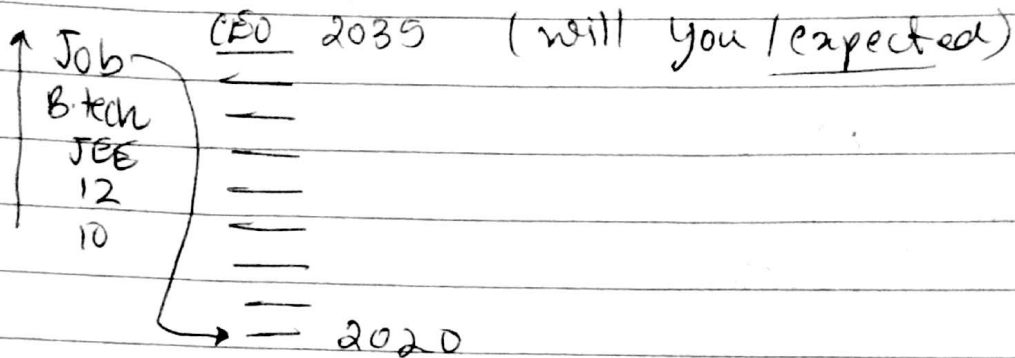 Job CEO 2035 (will you / expected)
B.tech
JEE
12
10
2020